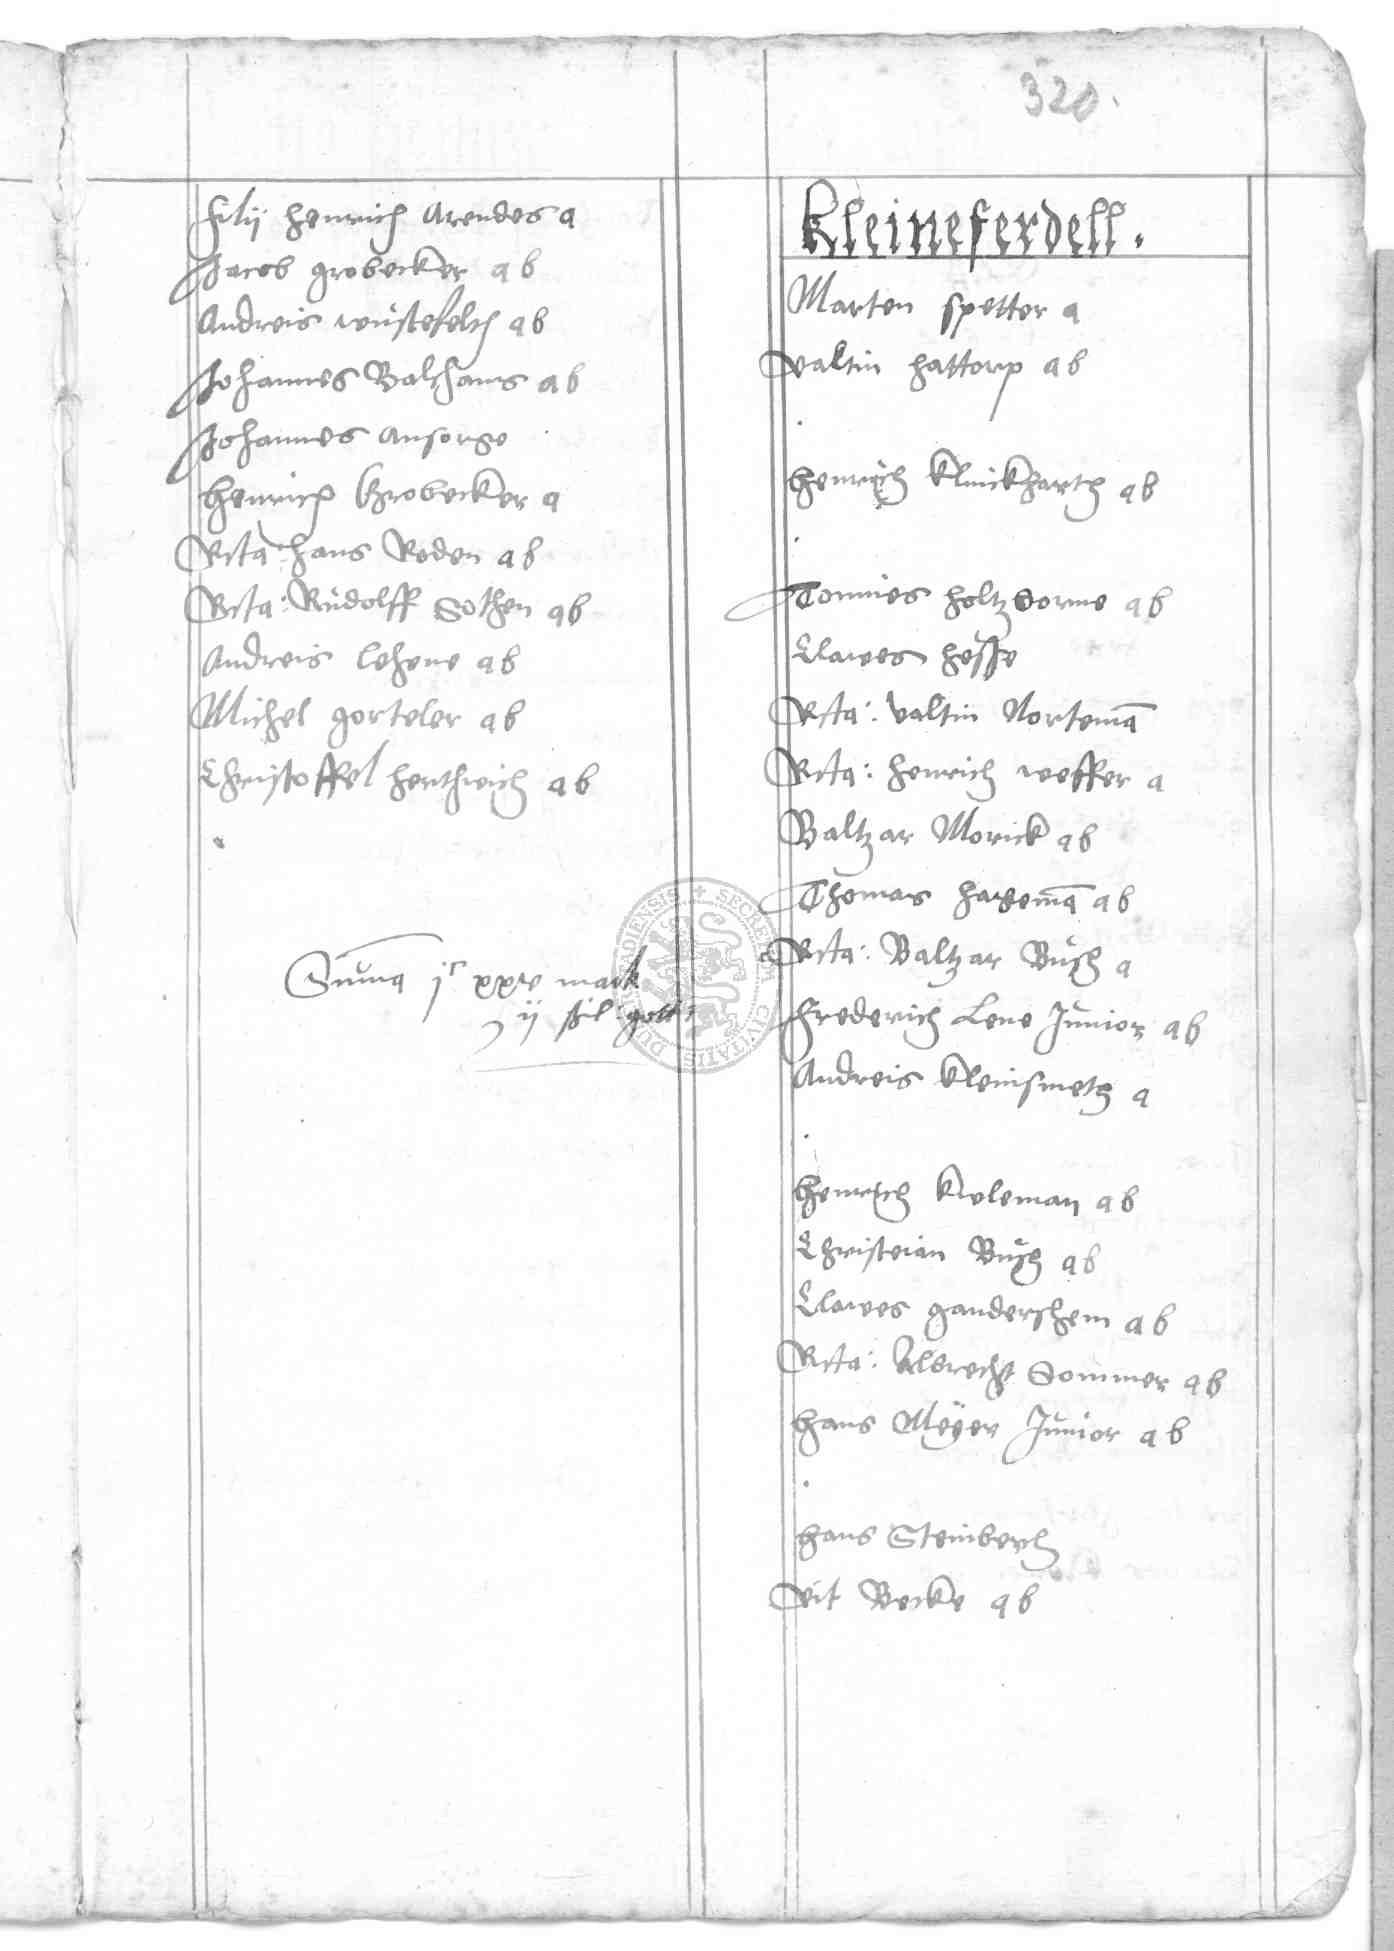 320.
filij henrich Arendes a
Jacob grobecker a b
Andreis wustefelth a b
Johannes Balthaus a b
Johannes Ansorge
Henrich Grobecker a
Rcta: hans Roden a b
Rcta: Rudolff Sothen a b
Andreis lehene a b
Michel gorteler a b
Christoffel henthreich a b
Suma jc xxv mark
ij sil: gott:
Kleineferdell.
Marten spetter a
valtin hattorp a b
Henrich klinckharth a b
Tonnies holtzborne a b
Clawes hesse
Rcta: valtin Nortemā
Rcta: Henrich wesser a
Baltzar Morick a b
Thomas hagemā a b
Rcta: Baltzar Busch a
Frederich Lene Junior a b
Andreis kleinsmeth a
Henrich kuleman a b
Christian Busch a b
Clawes gandershem a b
Rcta: Albrecht Sommer a b
hans Meÿer Junior a b
hans Steinberch
Vit Becke a b
SECRETVM CIVITATIS DUDERSTADIENSIS